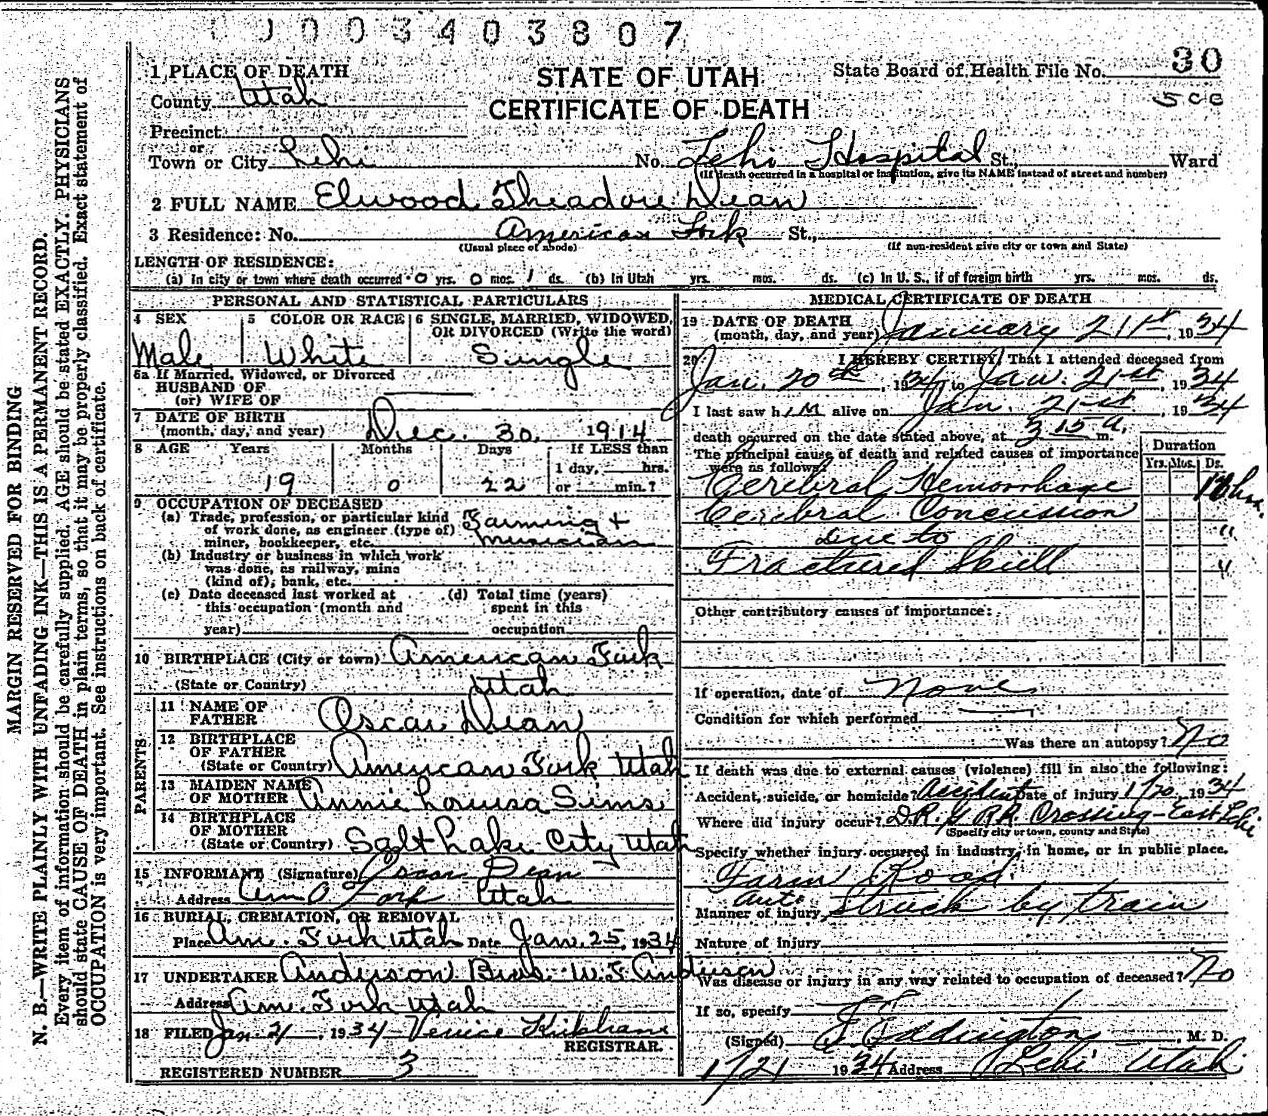 0003403807
1 PLACE OF DEATH
STATE OF UTAH
State Board of Health File No. 30
County Utah
CERTIFICATE OF DEATH
5cc
Precinct
or
Town or City Lehi No. Lehi Hospital St., Ward
(If death occurred in a hospital or institution, give its NAME instead of street and number)
2 FULL NAME Elwood Theadore Dean
3 Residence: No. American Fork St.,
(Usual place of abode) (If non-resident give city or town and State)
LENGTH OF RESIDENCE:
(a) In city or town where death occurred 0 yrs. 0 mos. 1 ds. (b) In Utah yrs. mos. ds. (c) In U. S., if of foreign birth yrs. mos. ds.
PERSONAL AND STATISTICAL PARTICULARS
4 SEX 5 COLOR OR RACE 6 SINGLE, MARRIED, WIDOWED, OR DIVORCED (Write the word)
Male White Single
6a If Married, Widowed, or Divorced
HUSBAND OF
(or) WIFE OF
7 DATE OF BIRTH
(month, day, and year) Dec. 30, 1914
8 AGE Years Months Days If LESS than
1 day, hrs.
19 0 22 or min.?
9 OCCUPATION OF DECEASED
(a) Trade, profession, or particular kind
of work done, as engineer (type of)
miner, bookkeeper, etc. Farming + musician
(b) Industry or business in which work
was done, as railway, mine
(kind of), bank, etc.
(c) Date deceased last worked at
this occupation (month and
year)
(d) Total time (years)
spent in this
occupation
10 BIRTHPLACE (City or town) American Fork
(State or Country) Utah
PARENTS
11 NAME OF
FATHER Oscar Dean
12 BIRTHPLACE
OF FATHER
(State or Country) American Fork Utah
13 MAIDEN NAME
OF MOTHER Annie Louisa Sims
14 BIRTHPLACE
OF MOTHER
(State or Country) Salt Lake City Utah
15 INFORMANT (Signature) Oscar Dean
Address Am Fork Utah
16 BURIAL, CREMATION, OR REMOVAL
Place Am. Fork Utah Date Jan. 25, 1934
17 UNDERTAKER Anderson Bros. W.S. Anderson
Address Am. Fork Utah
18 FILED Jan. 21, 1934 Venice
REGISTRAR.
REGISTERED NUMBER 3
MEDICAL CERTIFICATE OF DEATH
19 DATE OF DEATH
(month, day, and year) January 21st, 1934
20 I HEREBY CERTIFY, That I attended deceased from
Jan. 20th, 1934, to Jan. 21st, 1934
I last saw him alive on Jan. 21st, 1934
death occurred on the date stated above, at 3 15 a. m.
The principal cause of death and related causes of importance
were as follows:
Duration
Yrs. Mos. Ds.
Cerebral Hemorrhage
Cerebral Concussion "
due to
Fractured Skull "
Other contributory causes of importance:
If operation, date of None
Condition for which performed
Was there an autopsy? No
If death was due to external causes (violence) fill in also the following:
Accident, suicide, or homicide? Accident Date of injury 1/20, 1934
Where did injury occur? D.R.G R.R. Crossing-East Lehi
(Specify city or town, county and State)
Specify whether injury occurred in industry, in home, or in public place.
Farm Road.
Manner of injury auto Struck by train
Nature of injury
Was disease or injury in any way related to occupation of deceased? No
If so, specify
(Signed) Eddington, M. D.
1/21 1934 Address Lehi Utah
MARGIN RESERVED FOR BINDING
N. B.—WRITE PLAINLY WITH UNFADING INK—THIS IS A PERMANENT RECORD.
Every item of information should be carefully supplied. AGE should be stated EXACTLY. PHYSICIANS
should state CAUSE OF DEATH in plain terms, so that it may be properly classified. Exact statement of
OCCUPATION is very important. See instructions on back of certificate.